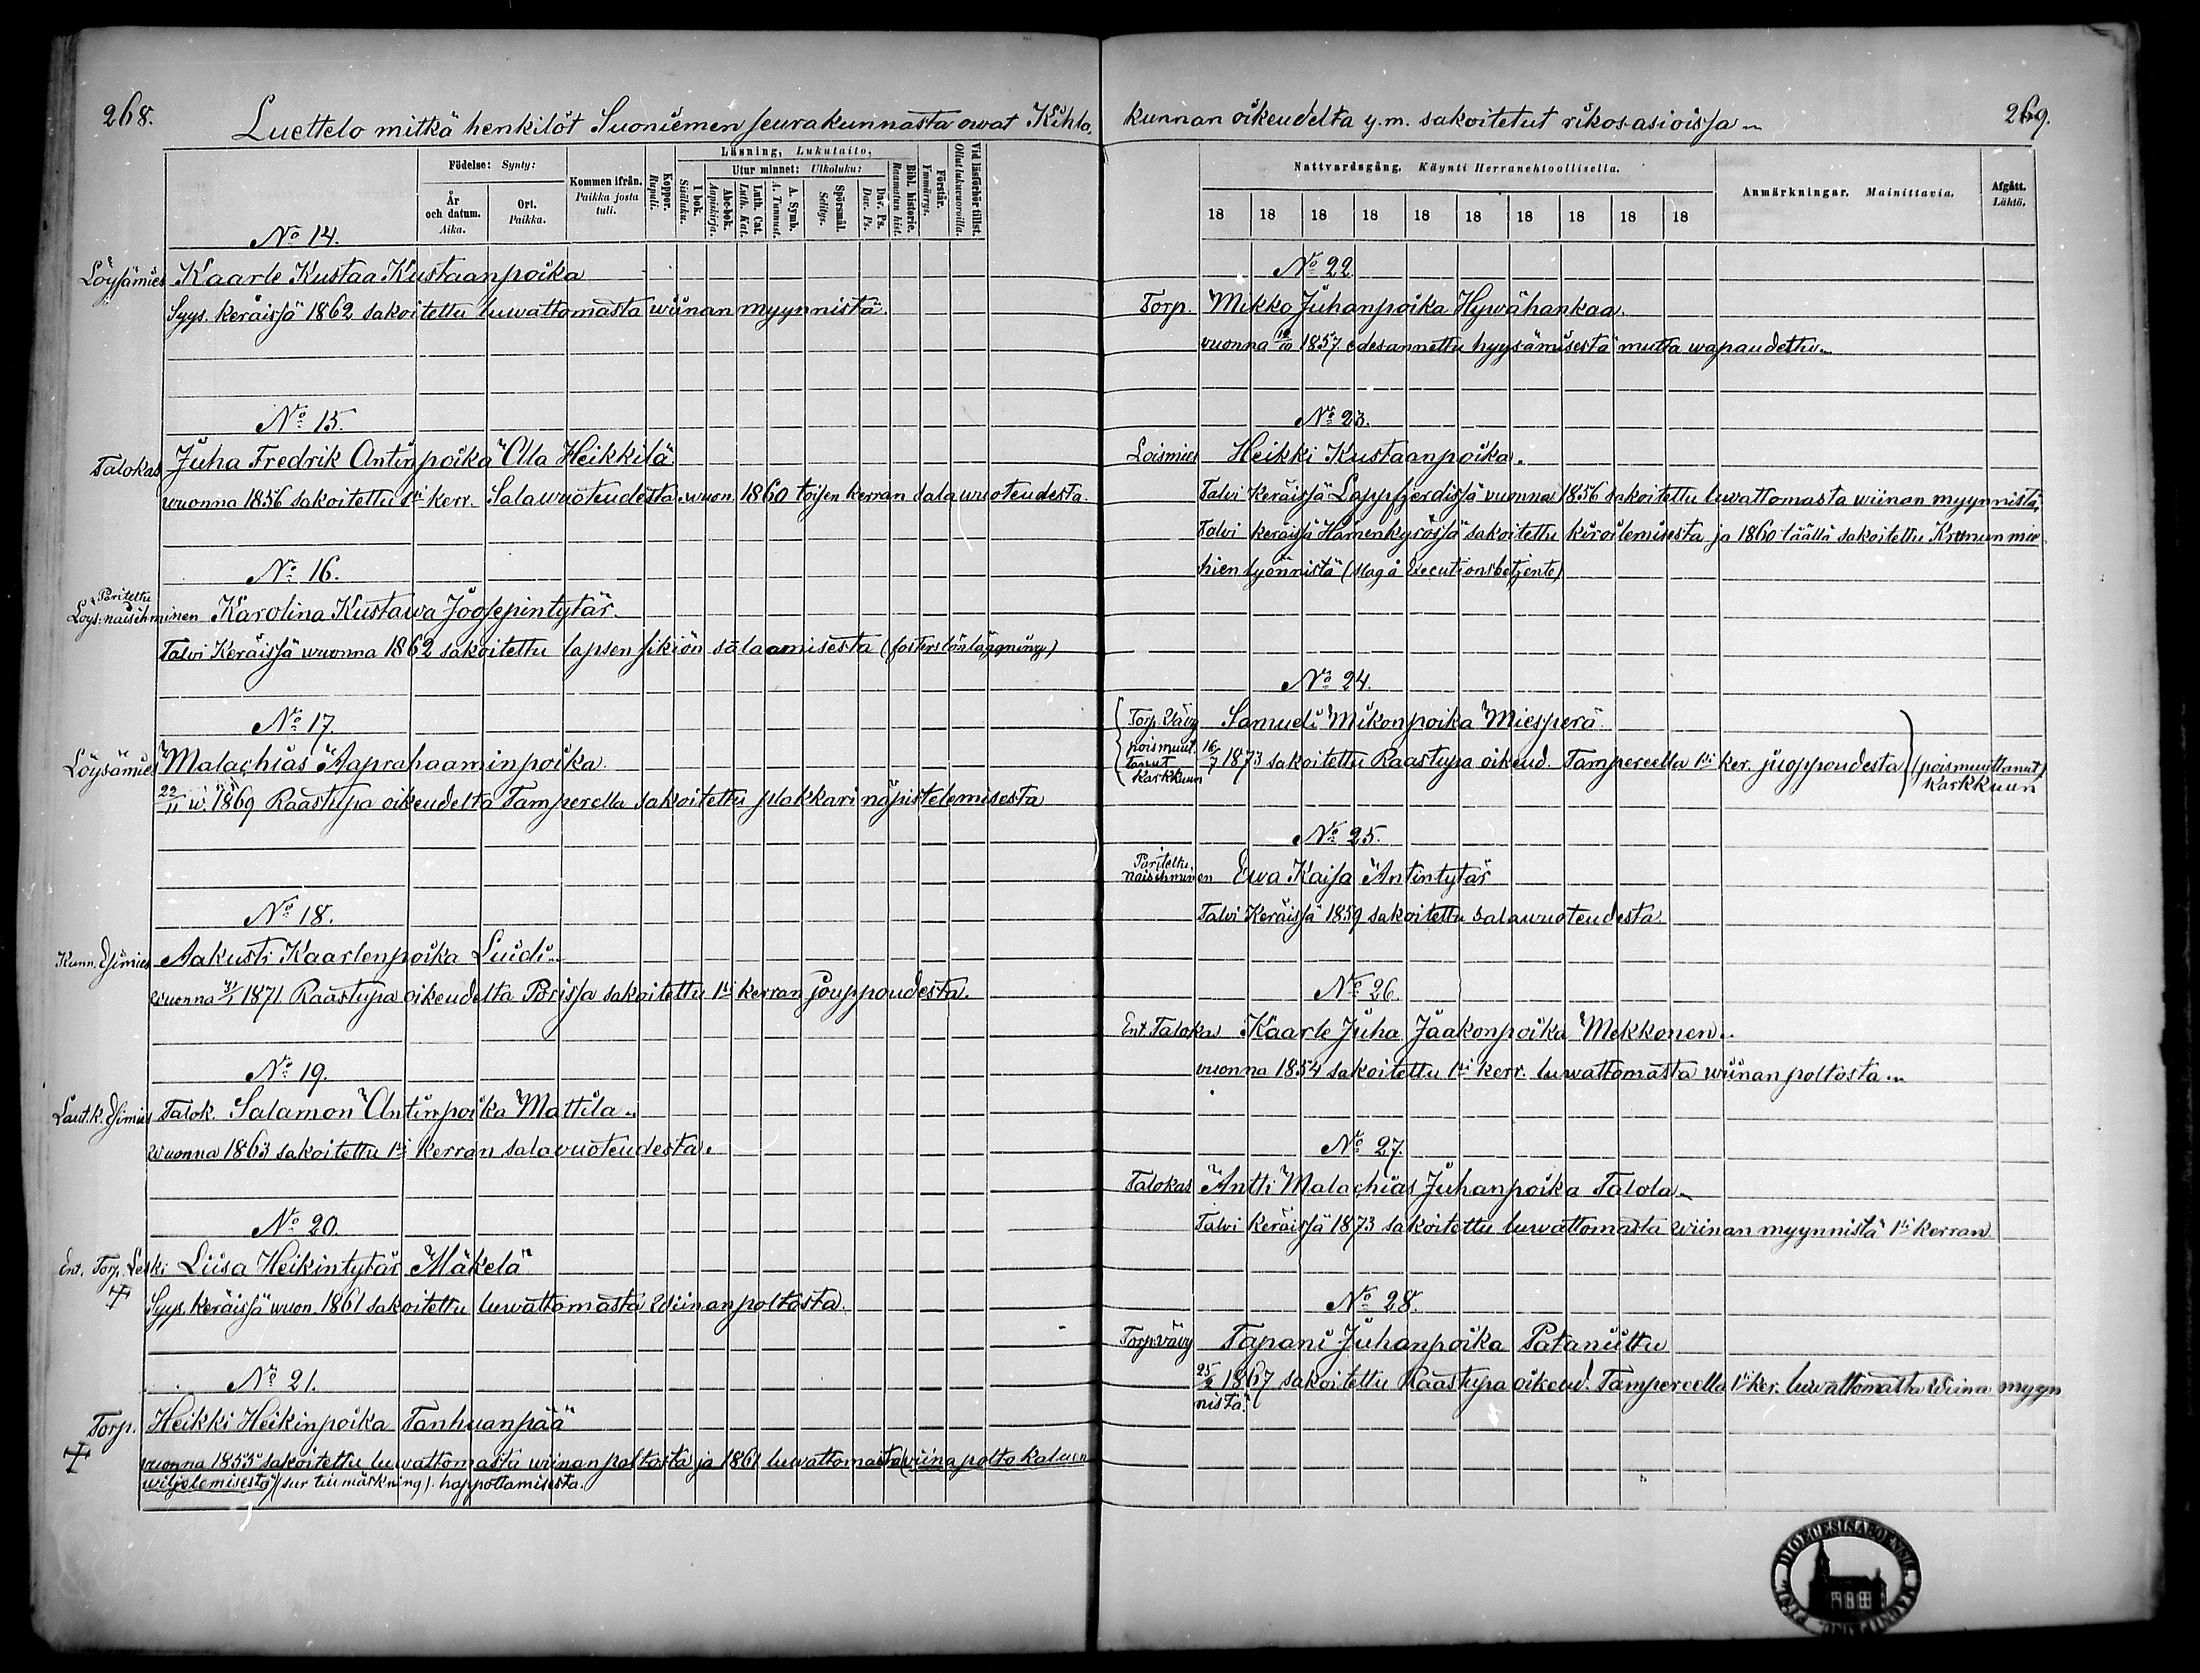 268.
Luettelo mitkä henkilöt Suoniemen seurakunnasta owat Kihla,
Födelse: Synty:
År och datum. Aika.
Ort. Paikka.
Kommen ifrån. Paikka josta tuli.
Koppor. Rupuli.
Läsning, Lukutaito,
I bok. Sisäluku.
Utur minnet: Ulkoluku:
Abc-bok. Aapiskirja.
Luth. Cat. Luth. Kat.
A. Symb. A. Tunnust.
Spörsmål. Selitys.
Dav. Ps. Dav. Ps.
Bibl. historie. Raamatun hist.
Förstår. Ymmärrys.
Vid läsförhör tillst. Ollut lukuwuoroilla.
No 14.
Löysämies Kaarle Kustaa Kustaanpoika
Syys. keräissä 1862 sakoitettu luwattomasta wiinan myynnistä.
No 15.
Talokas Juha Fredrik Antinpoika Ala Heikkilä
wuonna 1856 sakoitettu kerr. Salawuoteudesta wuon. 1860 toisen kerran salawuoteudesta.
No 16.
Löys. naisihminen Karolina Kustawa Joosepintytär
Talvi Keräissä wuonna 1862 sakoitettu lapsen sikiön salaamisesta (fosters lönläggning)
No 17.
Löysämies Malachias Aaprahaaminpoika
22/11 w. 1869 Raastupa oikeudelta Tamperella sakoitettu plakkari näpistelemisestä
No 18.
Kunn. Esimies Aakusti Kaarlenpoika Luidi
wuonna 1871 Raastupa oikeudelta Porissa sakoitettu 1si kerran jouppoudesta.
No 19.
Laut.k. Esimies Talok. Salamon Antinpoika Mattila
Wuonna 1863 sakoitettu 1si kerran salavuoteudesta.
No 20.
Ent. Torp. Leski Liisa Heikintytär Mäkelä
Syys. keräissä wuon. 1861 sakoitettu luwattomasta Wiinanpoltosta.
No 21.
Torp. Heikki Heikinpoika Tanhuanpää
wuonna 1853 sakoitettu luwattomasta wiinan poltosta ja 1861 luwattomasta wiina polto kaluen
wiljelemisestä) happottamisesta.
kunnan oikeudelta y.m. sakoitetut rikosasioissa
269.
Nattvardsgång. Käynti Herranehtoollisella.
18 18 18 18 18 18 18 18 18 18
Anmärkningar. Mainittavia.
Afgått. Lähtö.
No 22
Torp. Mikko Juhanpoika Hywähankaa.
wuonna 1857 edesannettu hyysämisestä mutta wapaudettu
No 23.
Loismies Heikki Kustaanpoika.
Talvi Keräissä Lappfjerdissä vuonna 1856 sakoitettu luvattomasta wiinan myynnistä,
Talvi keräissä Hämenkyrössä sakoitettu kiroilemisesta ja 1860 täällä sakoitettu Krunun mie
hien lyönnistä (slag å Executionsbetjente)
No 24.
Torp. Vävy Samueli Mikonpoika Miesperä
poismuut tanut Karkkuun
16/7 1873 sakoitettu Raastupa oikeud. Tampereella 1si ker. juoppoudesta (poismuuttanut)
Karkkuun
No 25.
naisihminen Ewa Kaisa Antintytär
Talvi Keräissä 1859 sakoitettu salawuoteudesta
No 26.
Ent. Talokas Kaarle Juha Jaakonpoika Mekkonen
vuonna 1854 sakoitettu 1si kerr. luwattomasta wiinan poltosta
No 27.
Talokas Antti Malachias Juhanpoika Talola
Talvi keräissä 1873 sakoitettu luwattomasta wiinan myynnistä 1si kerran
No 28.
Torp. vävy Tapani Juhanpoika Pataniittu
25/2 1867 sakoitettu Raastupa oikeud. Tampereella 1si ker. luwattomasta Wiina myyn
nistä.